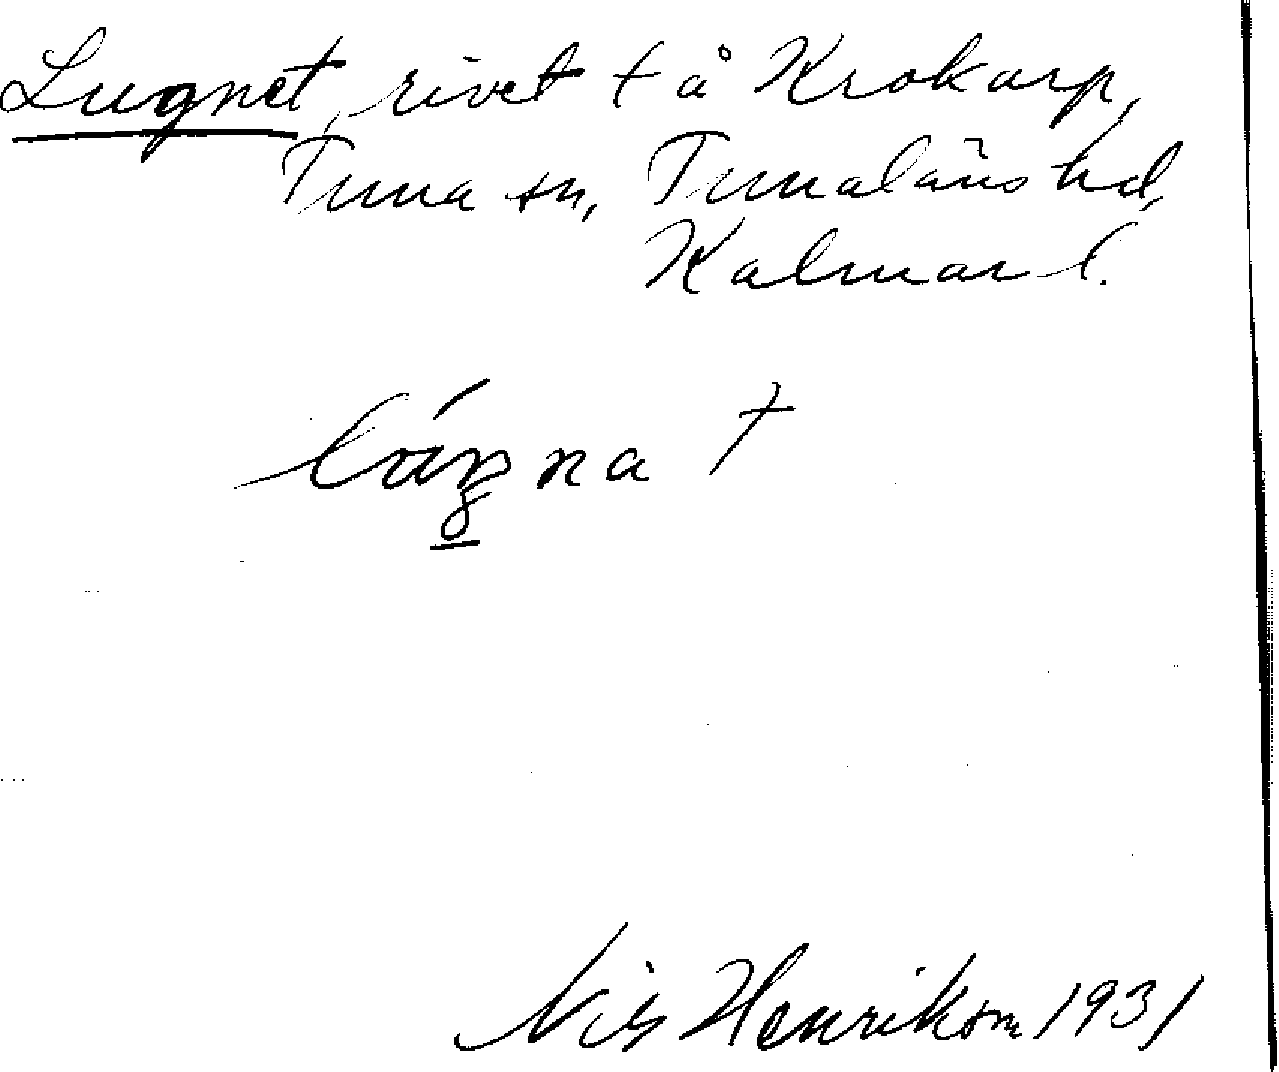 Lugnet, rivet t å Krokarp,
Tuna sn, Tunaläns hd,
Kalmar l.
Nils Henrikson 1931